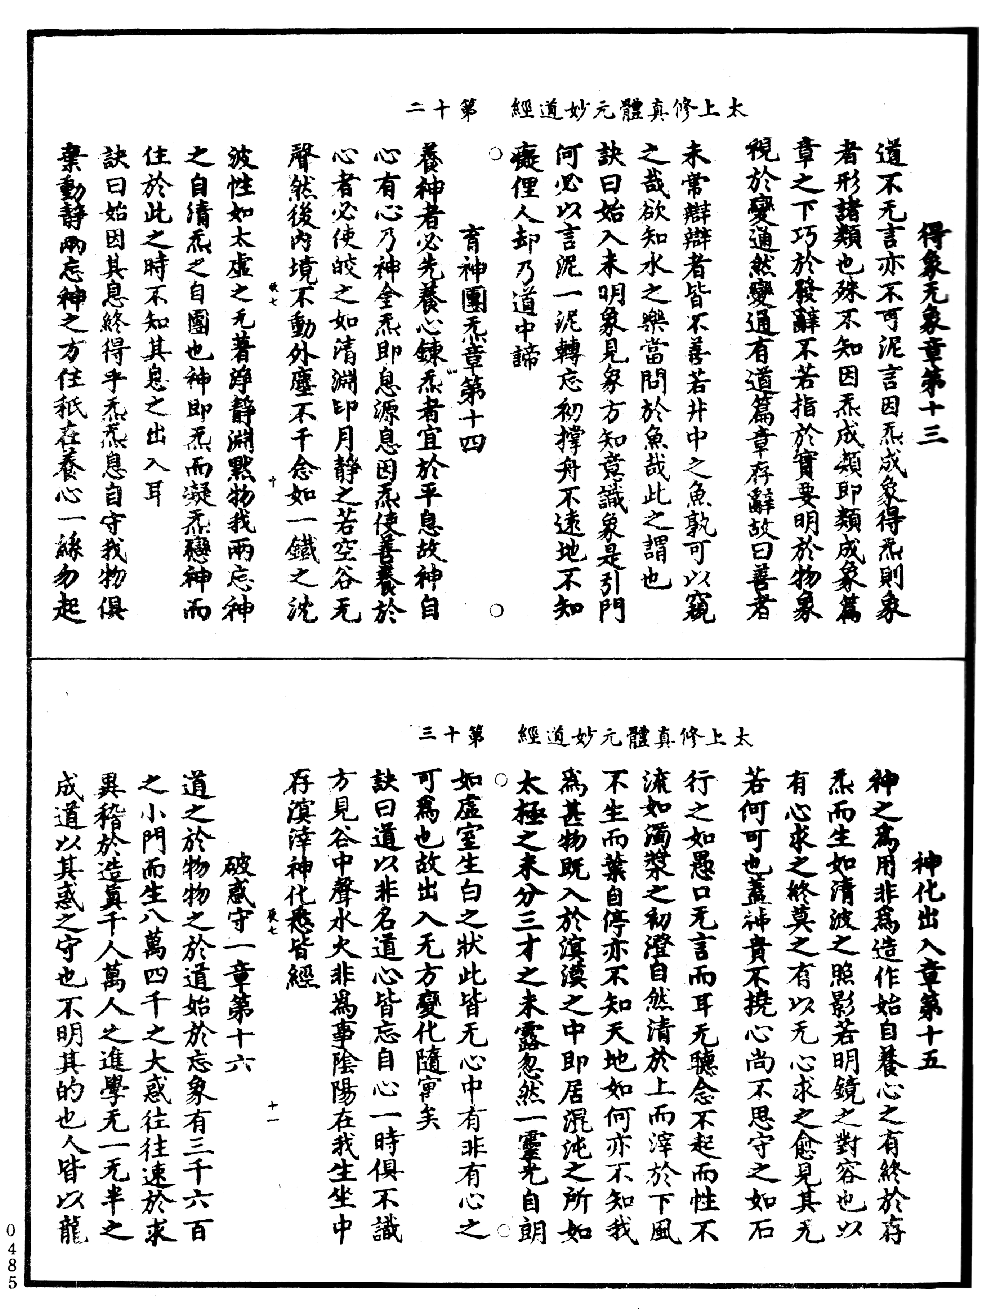 太上修真體元妙道經　第十二
得象无象章第十三
道不无言亦不可泥言因炁成象得炁則象
者形諸類也殊不知因炁成類即類成象篇
章之下巧於發辭不若指於實要明於物象
視於變通然變通有道篇章存辭故曰善者
未常辯辯者皆不善若井中之魚孰可以窺
之哉欲知水之樂當問於魚哉此之謂也
訣曰始入未明象見象方知意識象是引門
何必以言泥一泥轉忘初撑舟不遠地不知
癡俚人却乃道中諦
育神團炁章第十四
養神者必先養心鍊炁者宜於平息故神自
心有心乃神全炁即息源息因炁使善養於
心者必使皎之如清淵印月靜之若空谷无
聲然後內境不動外塵不干念如一鐵之沈
波性如太虛之无著淨靜淵默物我兩忘神
之自清炁之自團也神即炁而凝炁戀神而
住於此之時不知其息之出入耳
訣曰始因其息終得乎炁炁息自守我物俱
棄動靜兩忘神之方住秖在養心一絲勿起
太上修真體元妙道經　第十三
神化出入章第十五
神之爲用非爲造作始自養心之有終於存
炁而生如清波之照影若明鏡之對容也以
有心求之終莫之有以无心求之愈見其无
若何可也蓋神貴不撓心尚不思守之如石
行之如愚口无言而耳无聽念不起而性不
流如濁漿之初澄自然清於上而滓於下風
不生而葉自停亦不知天地如何亦不知我
爲甚物既入於溟漠之中即居混沌之所如
太極之未分三才之未露忽然一靈光自朗
如虛室生白之狀此皆无心中有非有心之
可爲也故出入无方變化隨寓矣
訣曰道以非名道心皆忘自心一時俱不識
方見谷中聲水火非爲事陰陽在我生坐中
存溟滓神化悉皆經
破惑守一章第十六
道之於物物之於道始於忘象有三千六百
之小門而生八萬四千之大惑往往速於求
異稽於造真千人萬人之進學无一无半之
成道以其惑之守也不明其的也人皆以龍
0485